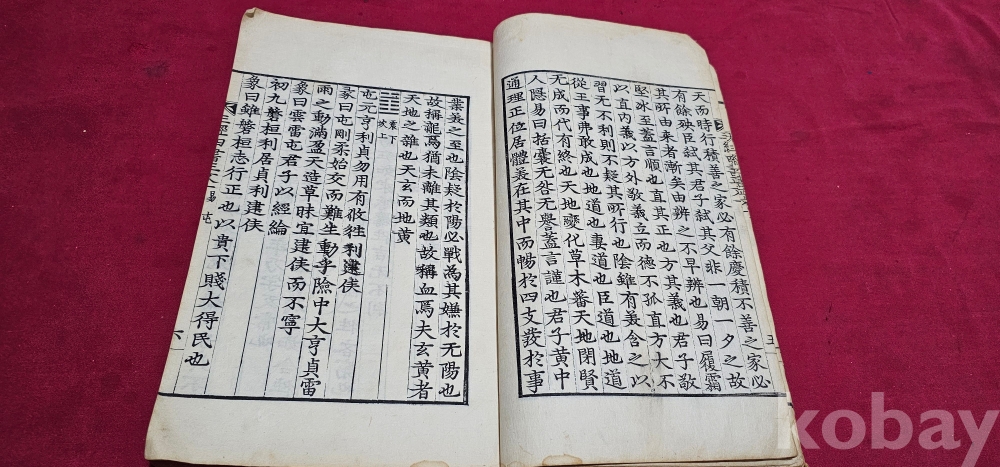 天而時行積善之家必有餘慶積不善之家必
有餘殃臣弑其君子弑其父非一朝一夕之故
其所由來者漸矣由辨之不早辨也易曰履霜
堅冰至蓋言順也直其正也方其義也君子敬
以直內義以方外敬義立而德不孤直方大不
習无不利則不疑其所行也陰雖有美含之以
從王事弗敢成也地道也妻道也臣道也地道
无成而代有終也天地變化草木蕃天地閉賢
人隱易曰括囊无咎无譽蓋言謹也君子黃中
通理正位居體美在其中而暢於四支發於事
五
業美之至也陰疑於陽必戰為其嫌於无陽也
故稱龍焉猶未離其類也故稱血焉夫玄黃者
天地之雜也天玄而地黃
䷂ 震下 坎上
屯元亨利貞勿用有攸往利建侯
彖曰屯剛柔始交而難生動乎險中大亨貞雷
雨之動滿盈天造草昧宜建侯而不寧
象曰雲雷屯君子以經綸
初九磐桓利居貞利建侯
象曰雖磐桓志行正也以貴下賤大得民也
易 屯 六
kobay